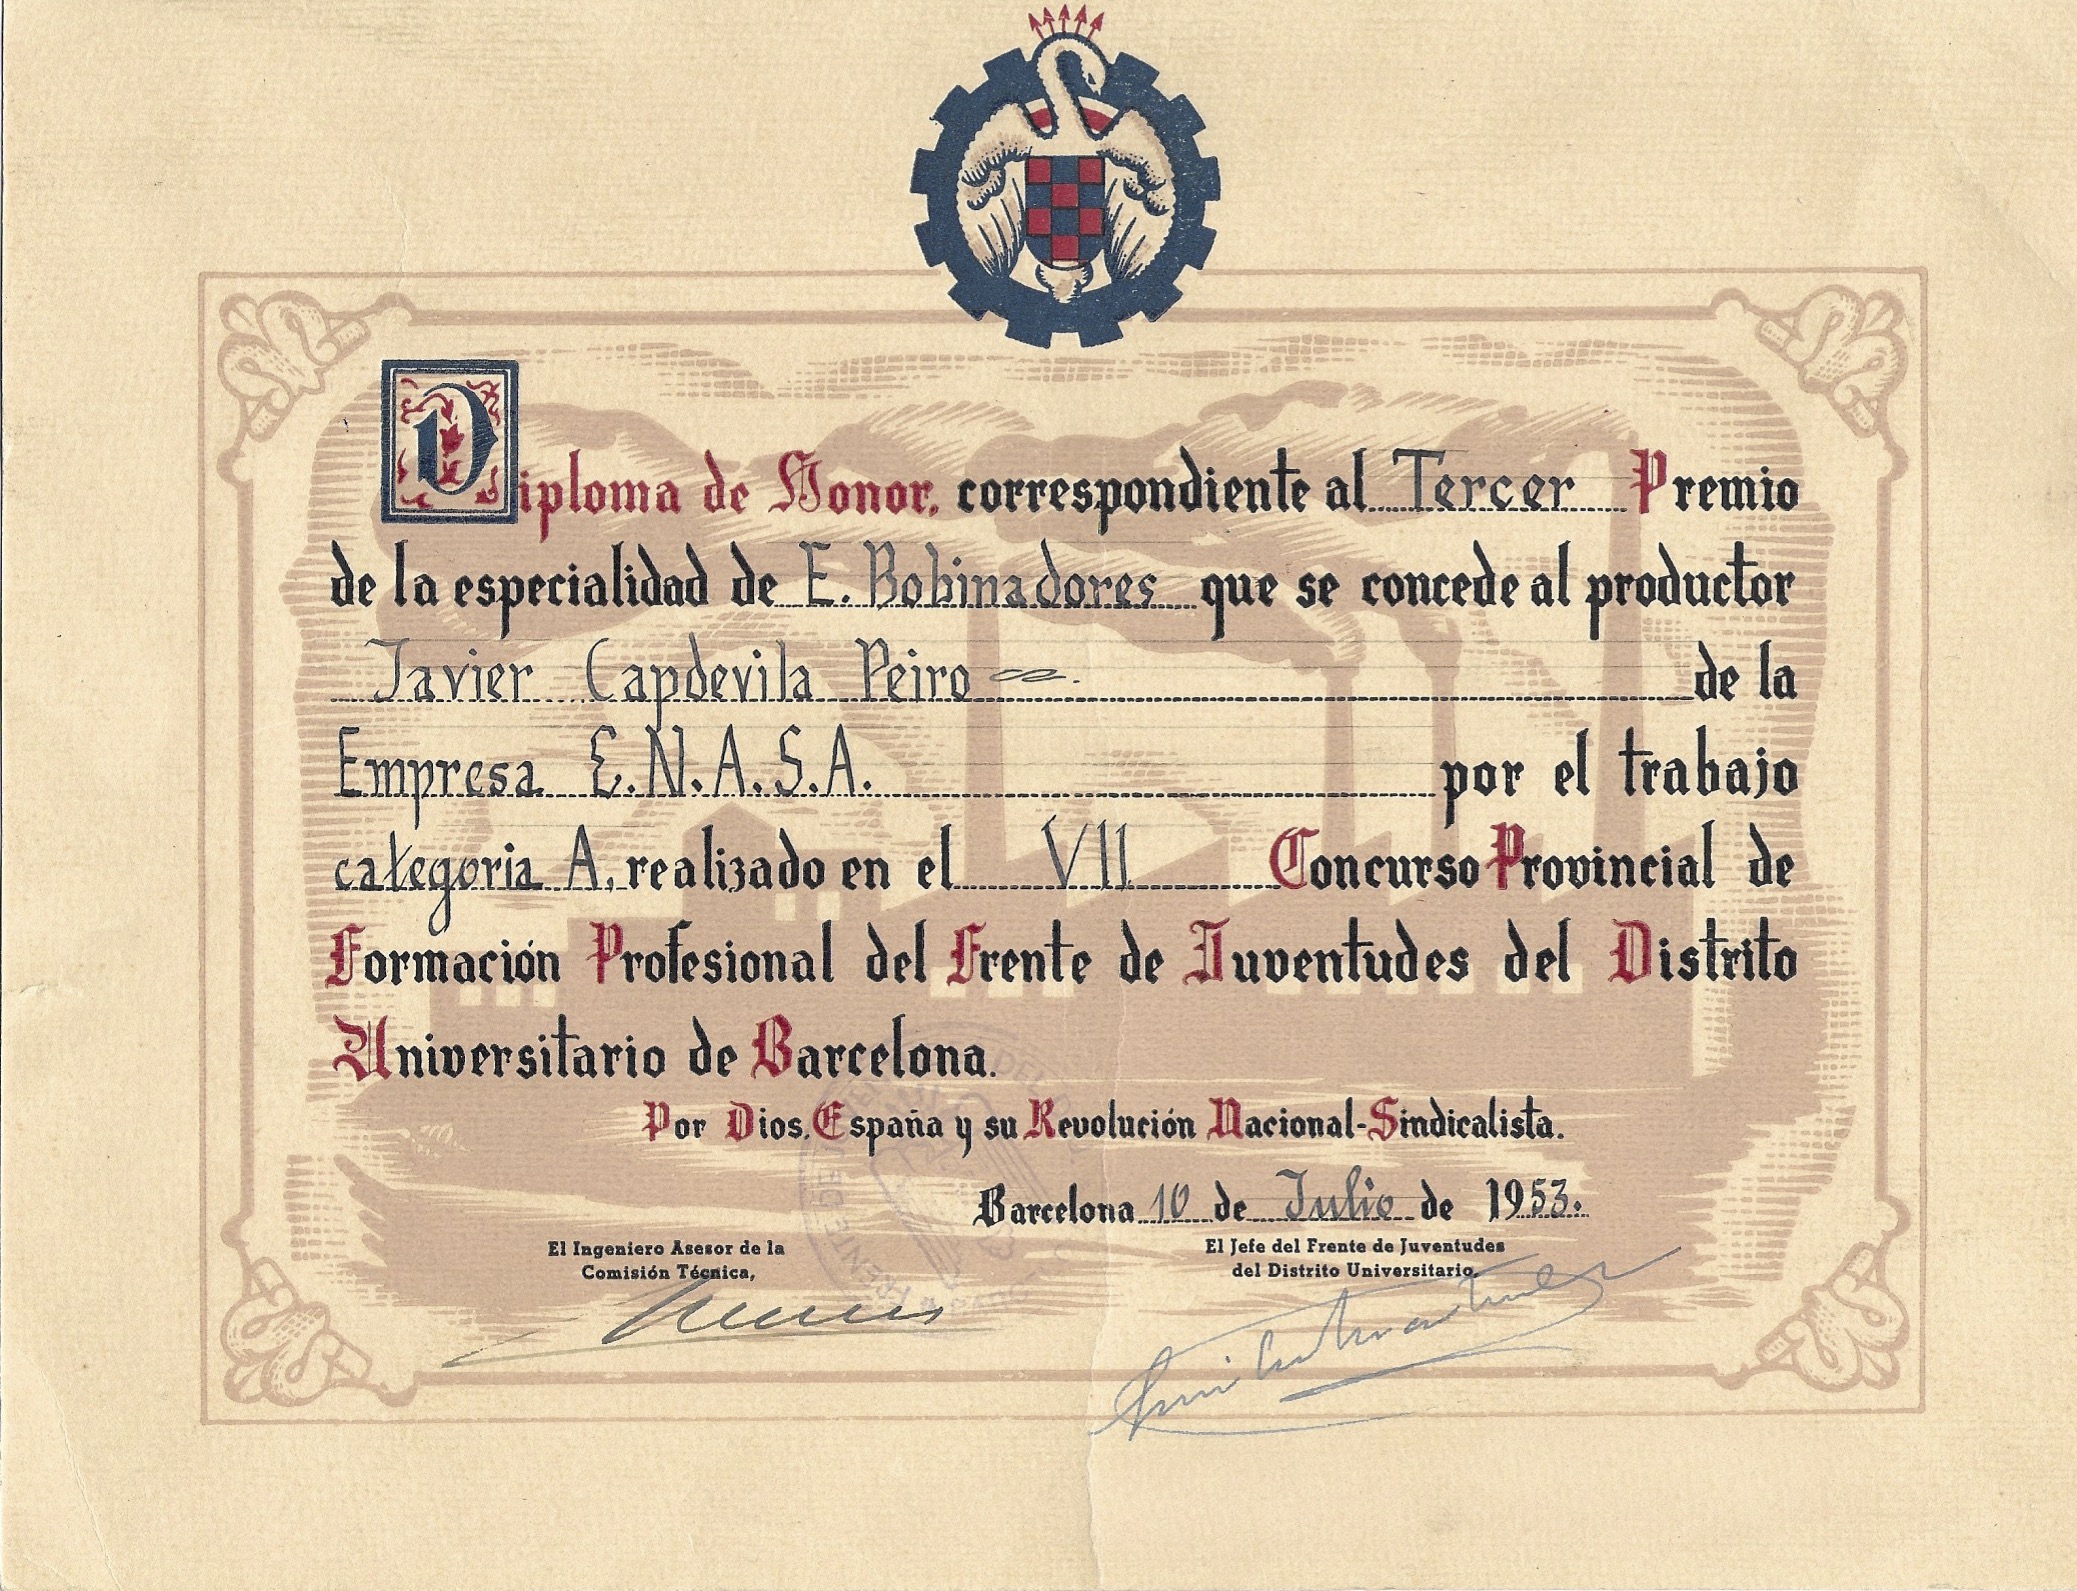 Diploma de Honor, correspondiente al Tercer Premio
de la especialidad de E. Bobinadores que se concede al productor
Javier Capdevila Peiro de la
Empresa E.N.A.S.A. por el trabajo
categoria A, realizado en el VII Concurso Provincial de
Formación Profesional del Frente de Juventudes del Distrito
Universitario de Barcelona.
Por Dios, España y su Revolución Nacional-Sindicalista.
Barcelona 10 de Julio de 1953.
El Ingeniero Asesor de la
Comisión Técnica,
El Jefe del Frente de Juventudes
del Distrito Universitario